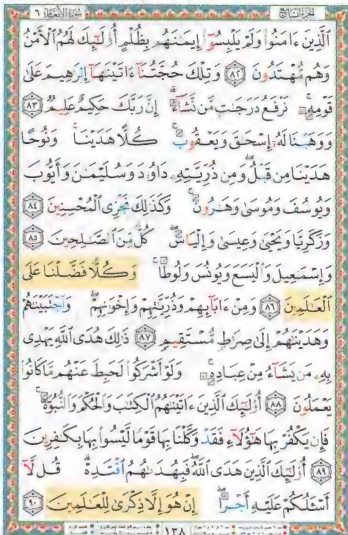 الجزء السابع سورة الأنعام ٦
الَّذِينَ ءَامَنُوا وَلَمْ يَلْبِسُوا إِيمَـٰنَهُم بِظُلْمٍ أُولَـٰئِكَ لَهُمُ الْأَمْنُ
وَهُم مُّهْتَدُونَ ٨٢ وَتِلْكَ حُجَّتُنَا ءَاتَيْنَـٰهَا إِبْرَٰهِيمَ عَلَىٰ
قَوْمِهِ نَرْفَعُ دَرَجَـٰتٍ مَّن نَّشَاءُ إِنَّ رَبَّكَ حَكِيمٌ عَلِيمٌ ٨٣
وَوَهَبْنَا لَهُ إِسْحَـٰقَ وَيَعْقُوبَ كُلًّا هَدَيْنَا وَنُوحًا
هَدَيْنَا مِن قَبْلُ وَمِن ذُرِّيَّتِهِ دَاوُدَ وَسُلَيْمَـٰنَ وَأَيُّوبَ
وَيُوسُفَ وَمُوسَىٰ وَهَـٰرُونَ وَكَذَٰلِكَ نَجْزِي الْمُحْسِنِينَ ٨٤
وَزَكَرِيَّا وَيَحْيَىٰ وَعِيسَىٰ وَإِلْيَاسَ كُلٌّ مِّنَ الصَّـٰلِحِينَ ٨٥
وَإِسْمَـٰعِيلَ وَالْيَسَعَ وَيُونُسَ وَلُوطًا وَكُلًّا فَضَّلْنَا عَلَى
الْعَـٰلَمِينَ ٨٦ وَمِنْ ءَابَائِهِمْ وَذُرِّيَّـٰتِهِمْ وَإِخْوَٰنِهِمْ وَاجْتَبَيْنَـٰهُمْ
وَهَدَيْنَـٰهُمْ إِلَىٰ صِرَٰطٍ مُّسْتَقِيمٍ ٨٧ ذَٰلِكَ هُدَى اللَّهِ يَهْدِي
بِهِ مَن يَشَاءُ مِنْ عِبَادِهِ وَلَوْ أَشْرَكُوا لَحَبِطَ عَنْهُم مَّا كَانُوا
يَعْمَلُونَ ٨٨ أُولَـٰئِكَ الَّذِينَ ءَاتَيْنَـٰهُمُ الْكِتَـٰبَ وَالْحُكْمَ وَالنُّبُوَّةَ
فَإِن يَكْفُرْ بِهَا هَـٰؤُلَاءِ فَقَدْ وَكَّلْنَا بِهَا قَوْمًا لَّيْسُوا بِهَا بِكَـٰفِرِينَ
٨٩ أُولَـٰئِكَ الَّذِينَ هَدَى اللَّهُ فَبِهُدَىٰهُمُ اقْتَدِهْ قُل لَّا
أَسْـَٔلُكُمْ عَلَيْهِ أَجْرًا إِنْ هُوَ إِلَّا ذِكْرَىٰ لِلْعَـٰلَمِينَ ٩٠
١٣٨